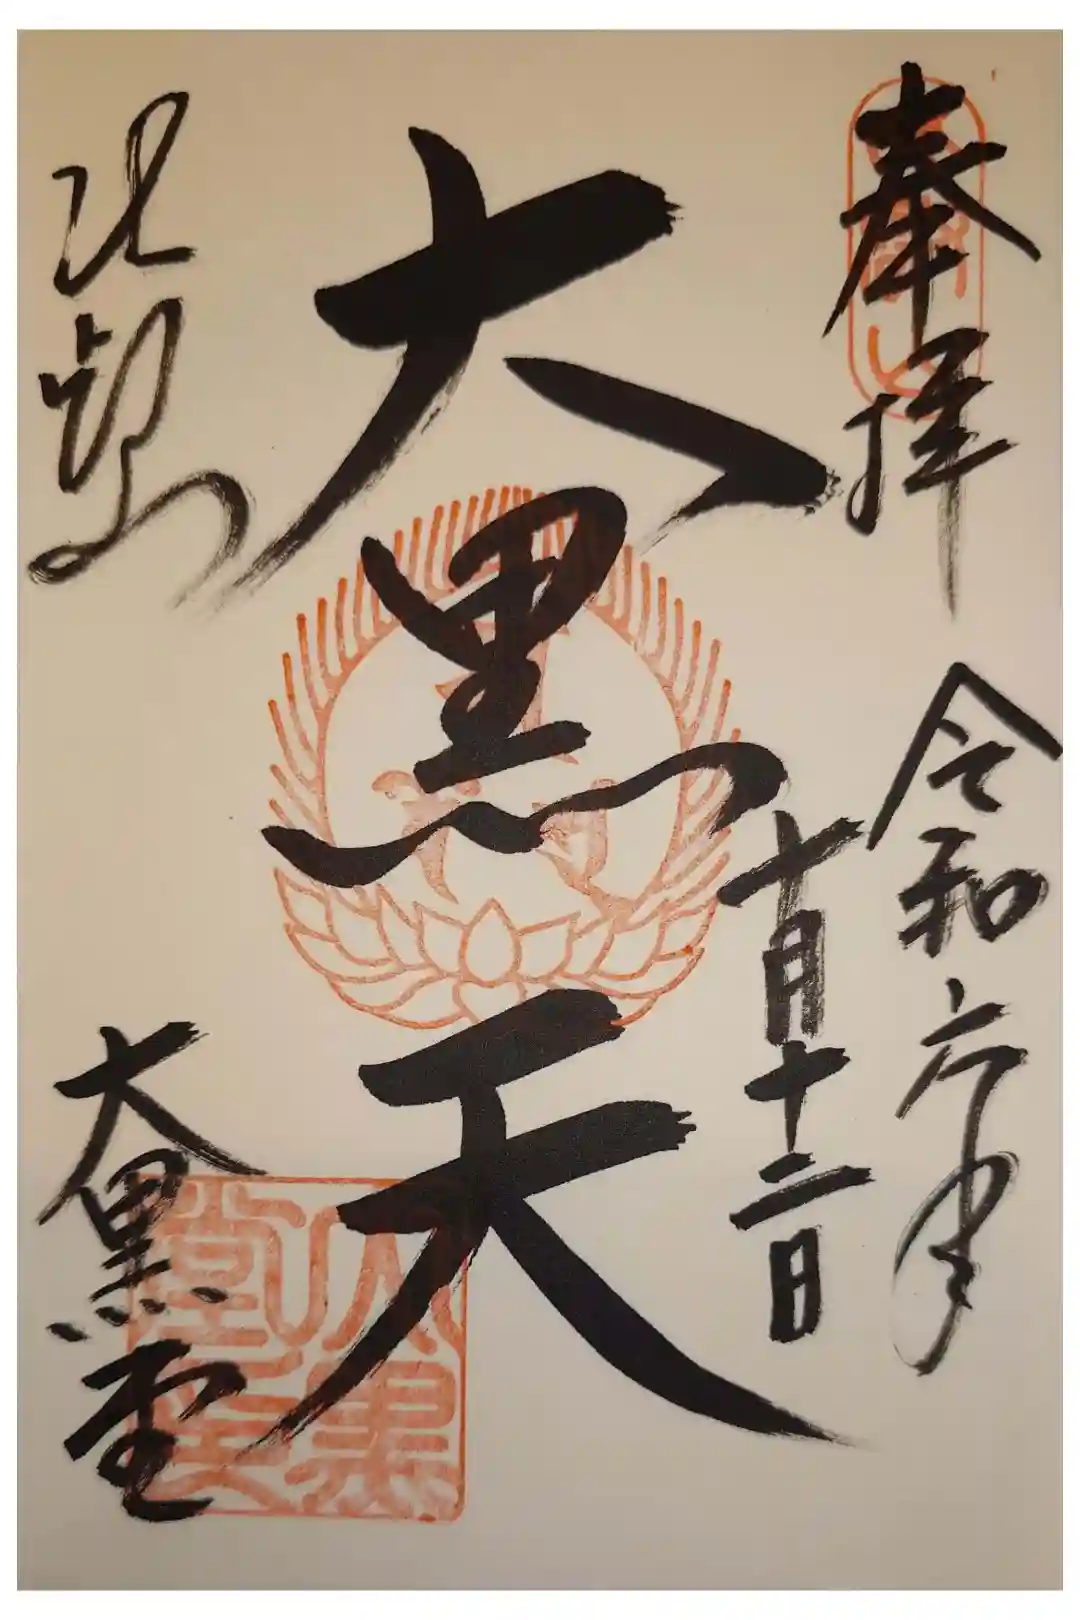 奉拝
令和六年
十月十二日
大黒天
比叡山
大黒堂